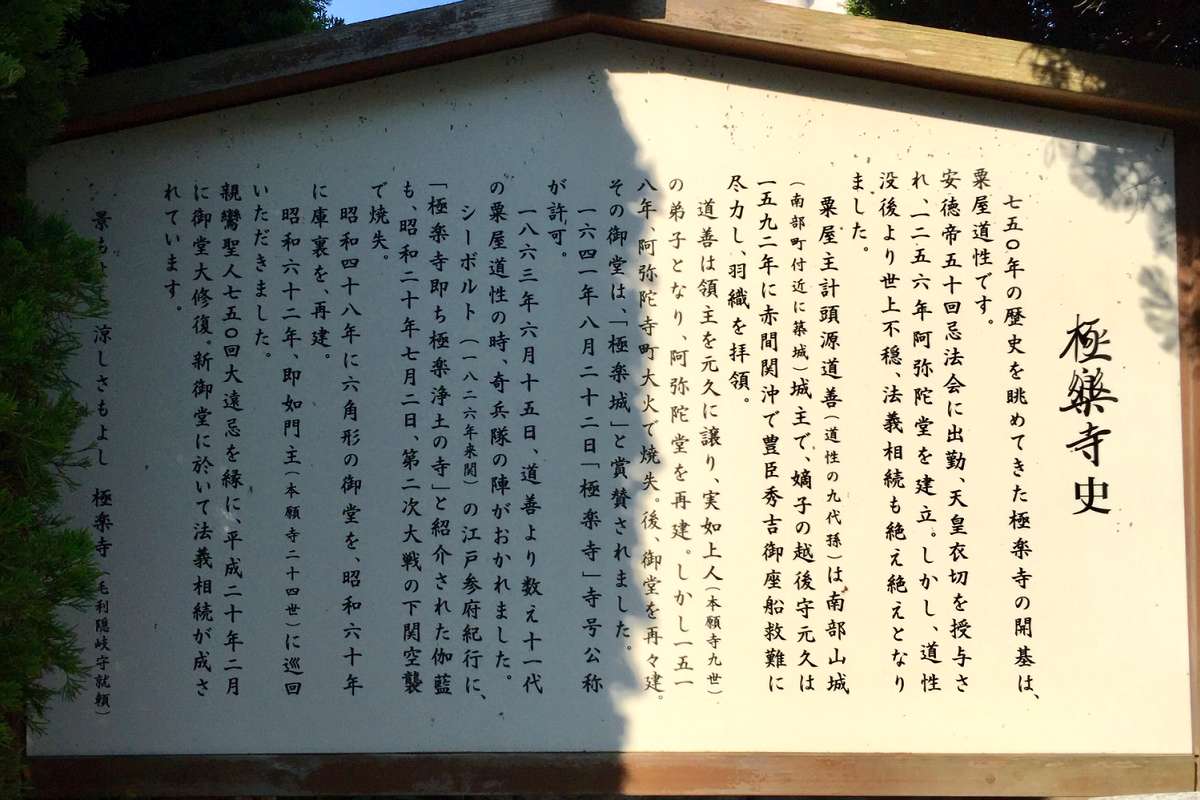 極樂寺史
七五〇年の歴史を眺めてきた極楽寺の開基は、
粟屋道性です。
安徳帝五十回忌法会に出勤、天皇衣切を授与さ
れ、一二五六年阿弥陀堂を建立。しかし、道性
没後より世上不穏、法義相続も絶え絶えとなり
ました。
粟屋主計頭源道善(道性の九代孫)は南部山城
(南部町付近に築城)城主で、嫡子の越後守元久は
一五九二年に赤間関沖で豊臣秀吉御座船救難に
尽力し、羽織を拝領。
道善は領主を元久に譲り、実如上人(本願寺九世)
の弟子となり、阿弥陀堂を再建。しかし一五一
八年、阿弥陀寺町大火で焼失。後、御堂を再々建。
その御堂は、「極楽城」と賞賛されました。
一六四一年八月二十二日「極楽寺」寺号公称
が許可。
一八六三年六月十五日、道善より数え十一代
の粟屋道性の時、奇兵隊の陣がおかれました。
シーボルト(一八二六年来関)の江戸参府紀行に、
「極楽寺即ち極楽浄土の寺」と紹介された伽藍
も、昭和二十年七月二日、第二次大戦の下関空襲
で焼失。
昭和四十八年に六角形の御堂を、昭和六十年
に庫裏を、再建。
昭和六十二年、即如門主(本願寺二十四世)に巡回
いただきました。
親鸞聖人七五〇回大遠忌を縁に、平成二十年二月
に御堂大修復。新御堂に於いて法義相続が成さ
れています。
景も 涼しさもよし 極楽寺(毛利隠岐守就頼)